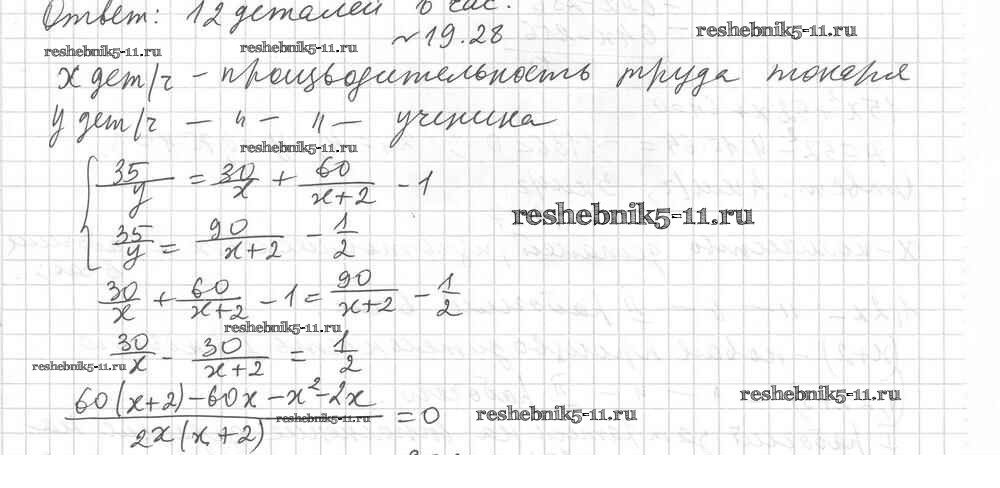 Ответ: 12 деталей в час.
№ 19.28
reshebnik5-11.ru
reshebnik5-11.ru
reshebnik5-11.ru
x дет/ч - производительность труда токаря
y дет/ч — " — " — ученика
reshebnik5-11.ru
{ 35/y = 30/x + 60/(x+2) - 1
35/y = 90/(x+2) - 1/2
reshebnik5-11.ru
30/x + 60/(x+2) - 1 = 90/(x+2) - 1/2
reshebnik5-11.ru
30/x - 30/(x+2) = 1/2
reshebnik5-11.ru
(60(x+2) - 60x - x² - 2x)/(2x(x+2)) = 0
reshebnik5-11.ru
reshebnik5-11.ru
reshebnik5-11.ru